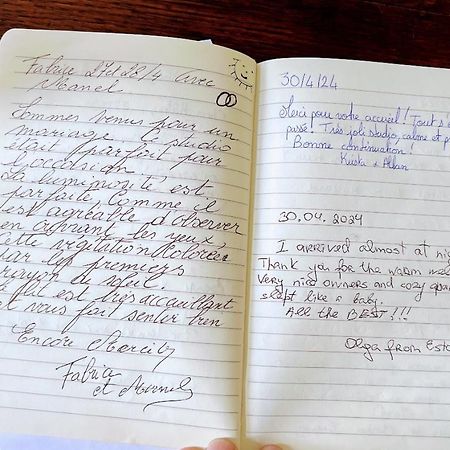 Fabrice 27 et 28/4 avec
Manel
Sommes venus pour un
mariage. Le studio
était parfait pour
l'occasion
La luminosité est
parfaite, comme il
est agréable d'observer
en ouvrant les yeux
cette végétation colorée
par les premiers
rayon de soleil.
Le lit est très accueillant
et vous fait sentir bien
Encore Merci
Fabrice
et Manel
30/4/24
Merci pour votre accueil! Tout s'
passé! Très joli studio, calme et p
Bonne continuation!
& Allan
30.04.2024
I arrived almost at nig
Thank you for the warm wel
Very nice owners and cozy apar
slept like a baby.
All the BEST!!!
Olga from Esto